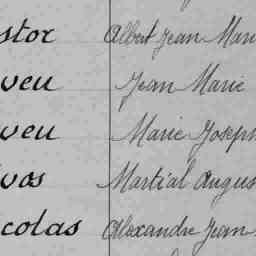 stor Albert Jean Mari
veu Jean Marie
veu Marie Joseph
vos Martial Augus
colas Alexandre Jean